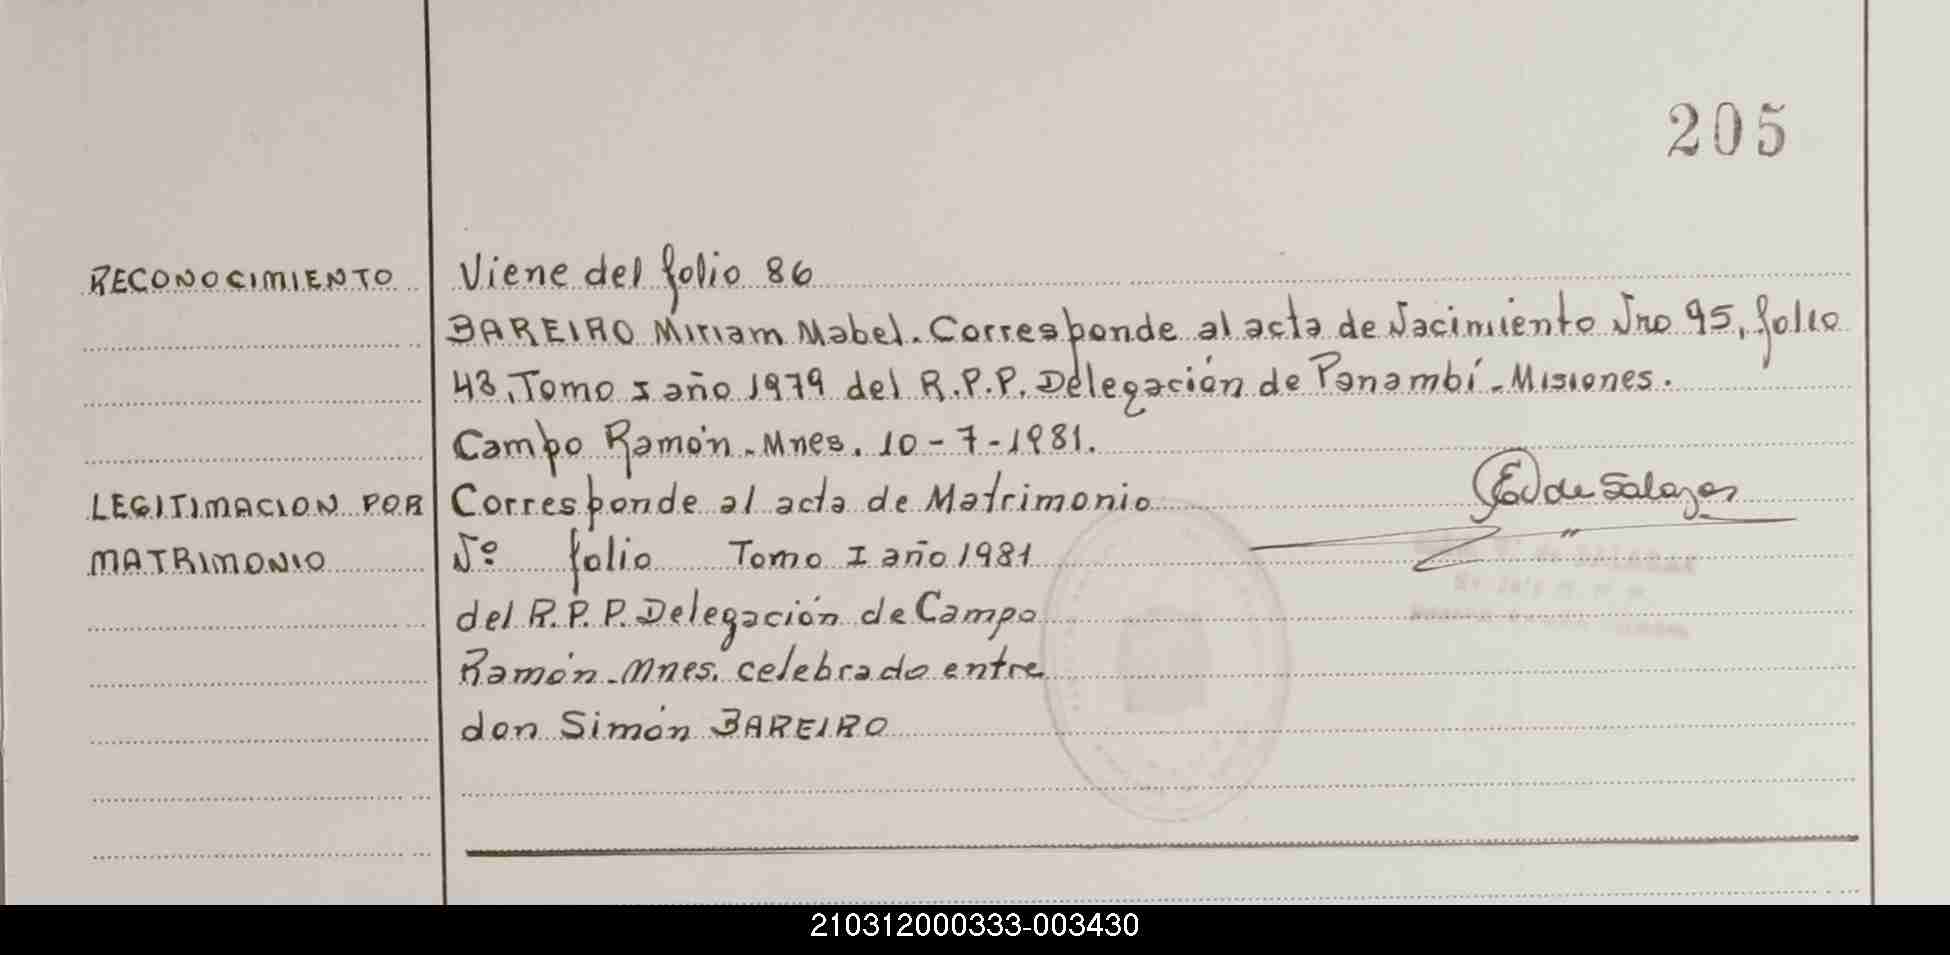 205
RECONOCIMIENTO
Viene del folio 86
BAREIRO Miriam Mabel. Corresponde al acta de Nacimiento Nro 95, folio
48, Tomo I año 1979 del R.P.P. Delegación de Panambí - Misiones.
Campo Ramón - Mnes. 10-7-1981.
LEGITIMACION POR
MATRIMONIO
Corresponde al acta de Matrimonio
Nº folio Tomo I año 1981
del R.P.P. Delegación de Campo
Ramón - Mnes. celebrado entre
don Simón BAREIRO
de Salazar
210312000333-003430